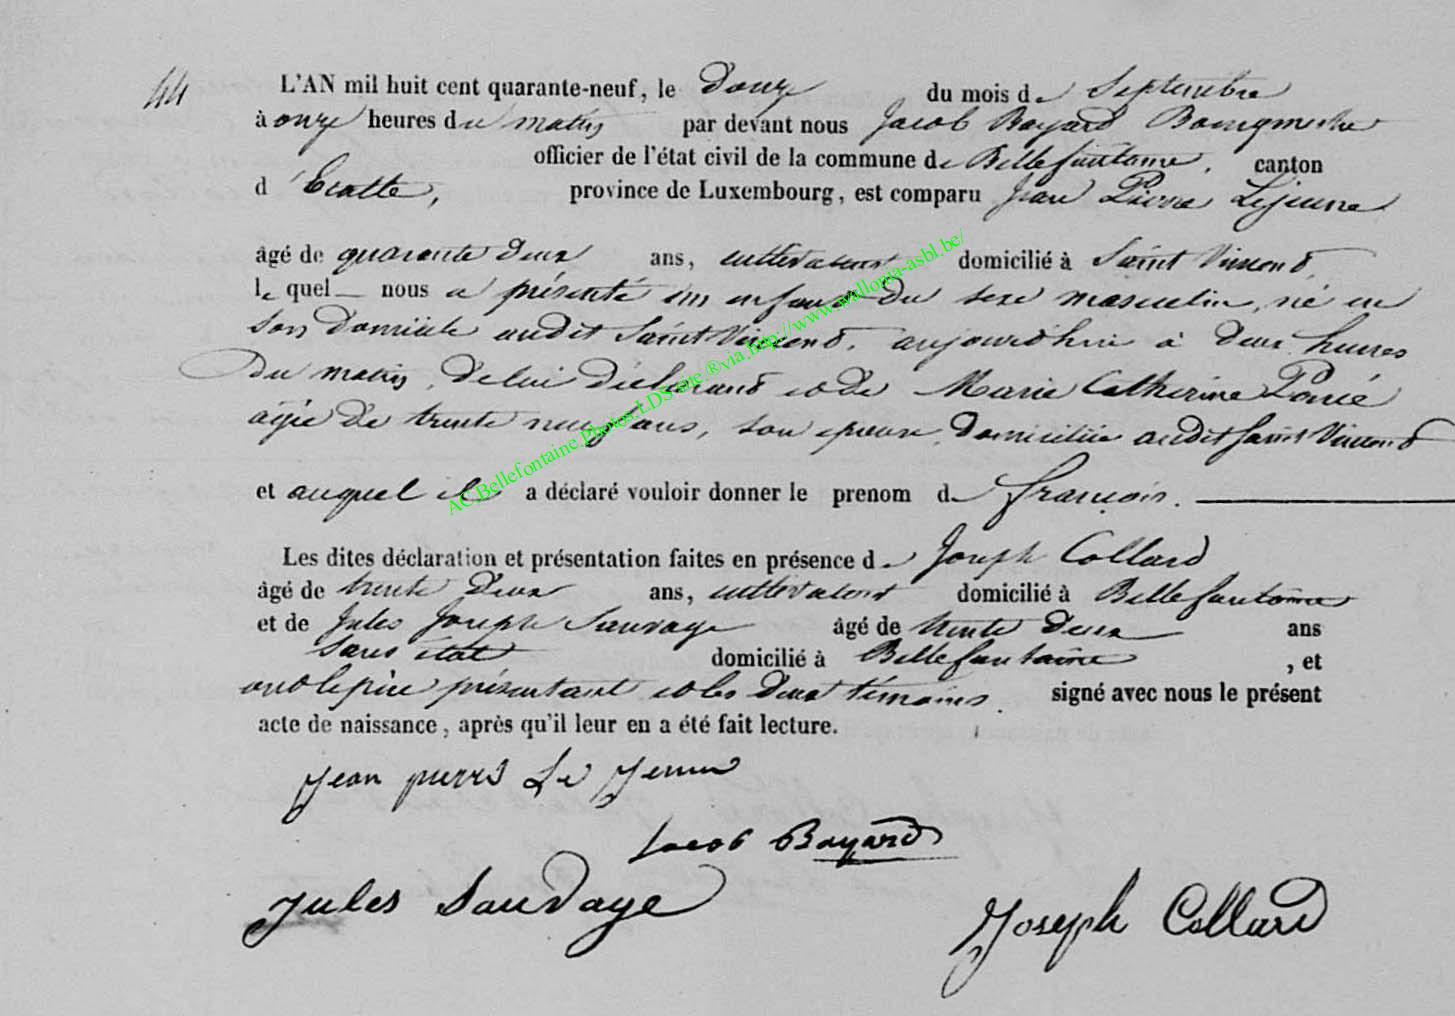 44
L'AN mil huit cent quarante-neuf, le Douze du mois de Septembre
à onze heures du matin par devant nous Jacob Bayard Bourgmestre
officier de l'état civil de la commune de Bellefontaine, canton
d'Etalle, province de Luxembourg, est comparu Jean Pierre Lejeune
âgé de quarante Deux ans, cultivateur domicilié à Saint Vincent,
lequel nous a présenté un enfant du sexe masculin, né en
son Domicile audit Saint Vincent, aujourd'hui à Deux heures
Du matin De lui Déclarant et de Marie Catherine
agée de trente neuf ans, son epouse, Domiciliée audit Saint Vincent
et auquel il a déclaré vouloir donner le prenom de François.
Les dites déclaration et présentation faites en présence de Joseph Collard
âgé de trente Deux ans, cultivateur domicilié à Bellefontaine
et de Jules Joseph Sauvage âgé de trente Deux ans
Sans état domicilié à Bellefontaine, et
ont le père présentant et les Deux témoins signé avec nous le présent
acte de naissance, après qu'il leur en a été fait lecture.
Jean pierre Le Jeune
Jacob Bayard
Jules Sauvage
Joseph Collard
AC Bellefontaine.Photos LDS.org ® via http://www.wallonia-asbl.be/